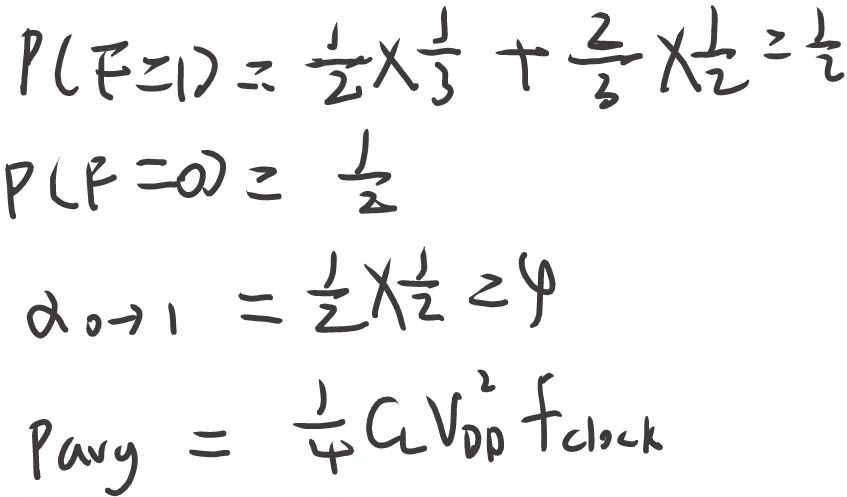 P(F=1) = 1/2 × 1/3 + 2/3 × 1/2 = 1/2
P(F=0) = 1/2
α₀→₁ = 1/2 × 1/2 = φ
Pavg = 1/4 C_L V_DD² f_clock